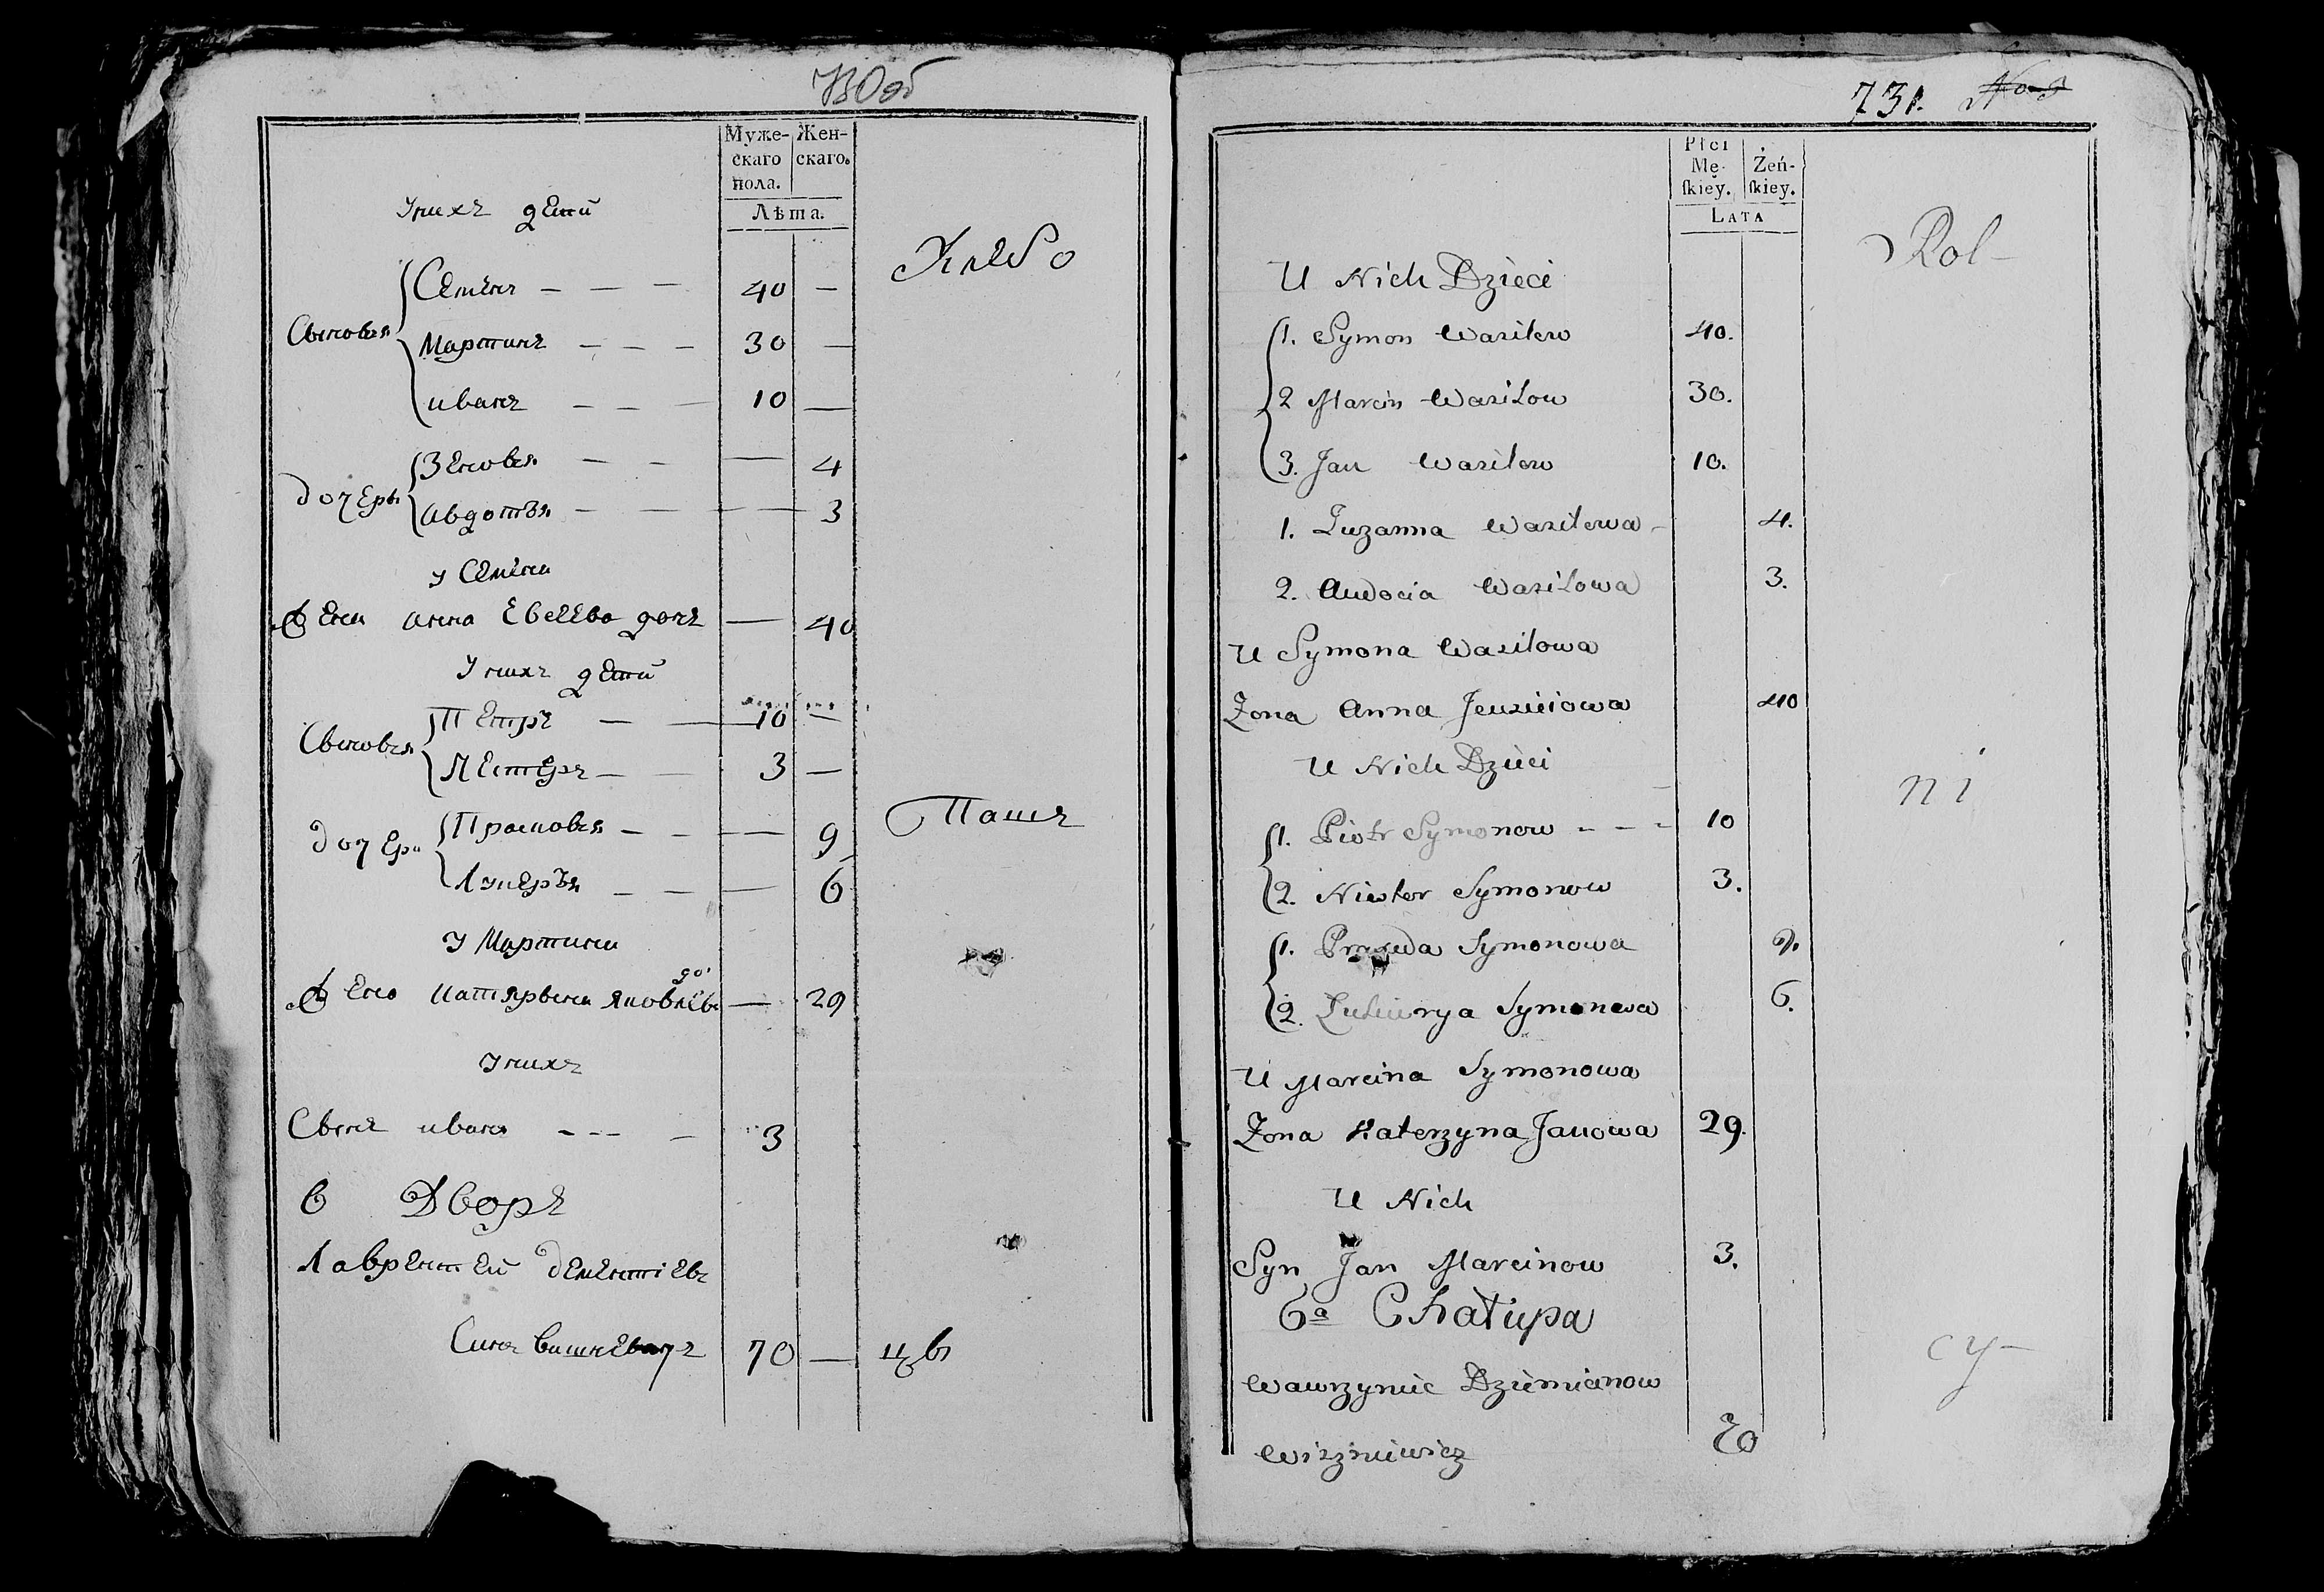 Муже-
скаго
пола.
Жен-
скаго.
Лѣта.
Унихъ дети
Хлебо
Сыновья
Семенъ — — — 40 —
Мартинъ — — — 30 —
иванъ — — — 10 —
дочери
Зеновья — — — 4
авдотъя — — — — 3
у Семена
Жена анна Евсеева дочь — 40
Унихъ дети
Сыновья
Петръ — — 10 —
Нестеръ — — 3 —
Пашъ
дочери
Прасковья — — — 9
Лукеръя — — — 6
У Мартина
до
Жена катярына яковлев — 29
унихъ
Сынъ иванъ - - - — 3
6 Дворъ
Лаврентей дементіевъ
Синъ вишневичъ 70 —
731.
Płci
Mę-
ſkiey.
Żeń-
ſkiey.
LATA
Rol-
U Nich Dzieci
1. Symon Wasilew 40.
2 Marcin Wasilow 30.
3. Jan Wasilew 10.
1. Zuzanna Wasilewa - 4.
2. Audocia Wasilowa 3.
U Symona Wasilowa
Zona Anna Jeusieiowa 40
U Nich Dzieci
ni
1. Piotr Symonow - - - 10
2. Niester Symonow 3.
1. Symonowa 9.
2. Symonowa 6.
U Marcina Symonowa
Zona Katerzyna Janowa 29.
U Nich
Syn Jan Marcinow 3.
6a Chałupa
cy-
Wawrzyniec Dziemianow
Wiszniewicz 70